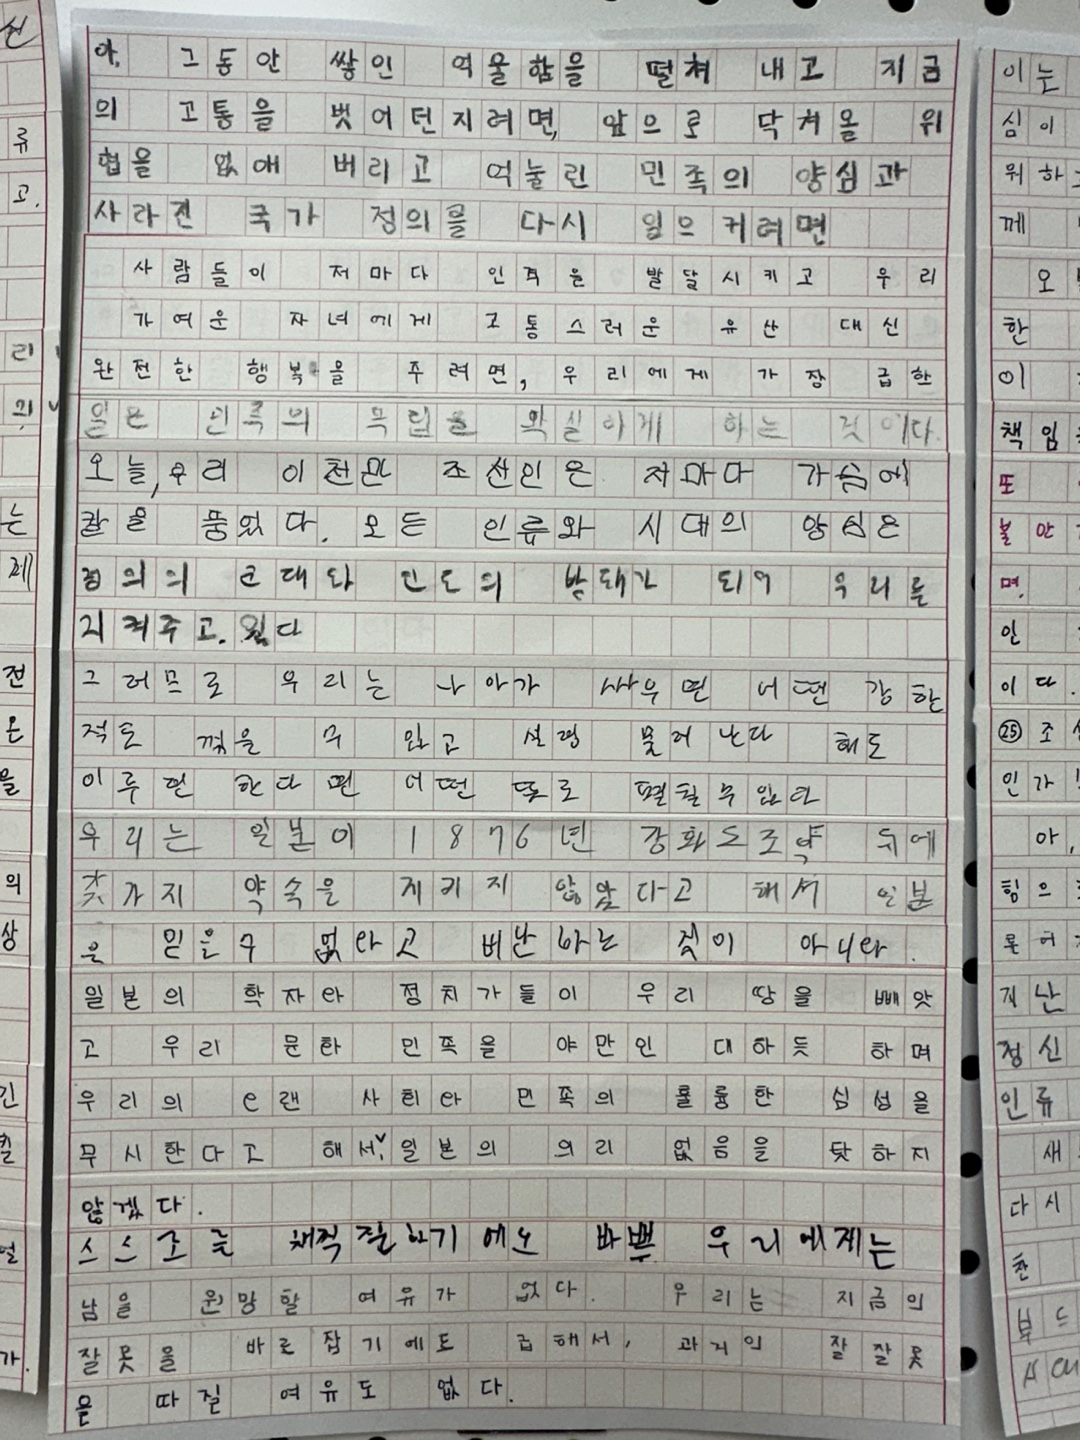 아, 그동안 쌓인 억울함을 떨쳐 내고 지금
의 고통을 벗어던지려면, 앞으로 닥쳐올 위
협을 없애 버리고 억눌린 민족의 양심과
사라진 국가 정의를 다시 일으켜려면
사람들이 저마다 인격을 발달시키고 우리
가여운 자녀에게 고통스러운 유산 대신
완전한 행복을 주려면, 우리에게 가장 급한
일은 민족의 독립을 확실하게 하는 것이다.
오늘, 우리 이천만 조선인은 저마다 가슴에
칼을 품었다. 모든 인류와 시대의 양심은
정의의 군대와 인도의 방패가 되어 우리를
지켜주고. 있다
그러므로 우리는 나아가 싸우면 어떤 강한
적도 꺾을 수 있고 설령 물러난다 해도
이루려 한다면 어떤 뜻도 펼칠수있다
우리는 일본이 1876년 강화도조약 뒤에
갖가지 약속을 지키지 않았다고 해서 일본
을 믿을수 없다고 비난하는 것이 아니다.
일본의 학자와 정치가들이 우리 땅을 빼앗
고 우리 문화 민족을 야만인 대하듯 하며
우리의 오랜 사회와 민족의 훌륭한 심성을
무시한다고 해서, 일본의 의리 없음을 탓하지
않겠다.
스스로를 채찍질하기에도 바쁜 우리에게는
남을 원망할 여유가 없다. 우리는 지금의
잘못을 바로잡기에도 급해서, 과거의 잘잘못
을 따질 여유도 없다.
이는
심이
위하
께
오
한
이
책임
또
불안
며.
인
이다.
㉕ 조
인가
아,
힘으로
물어
지난
정신
인류
새
다시
찬
신
류
고.
리
의
는
제
전
은
을
의
상
긴
킬
가.